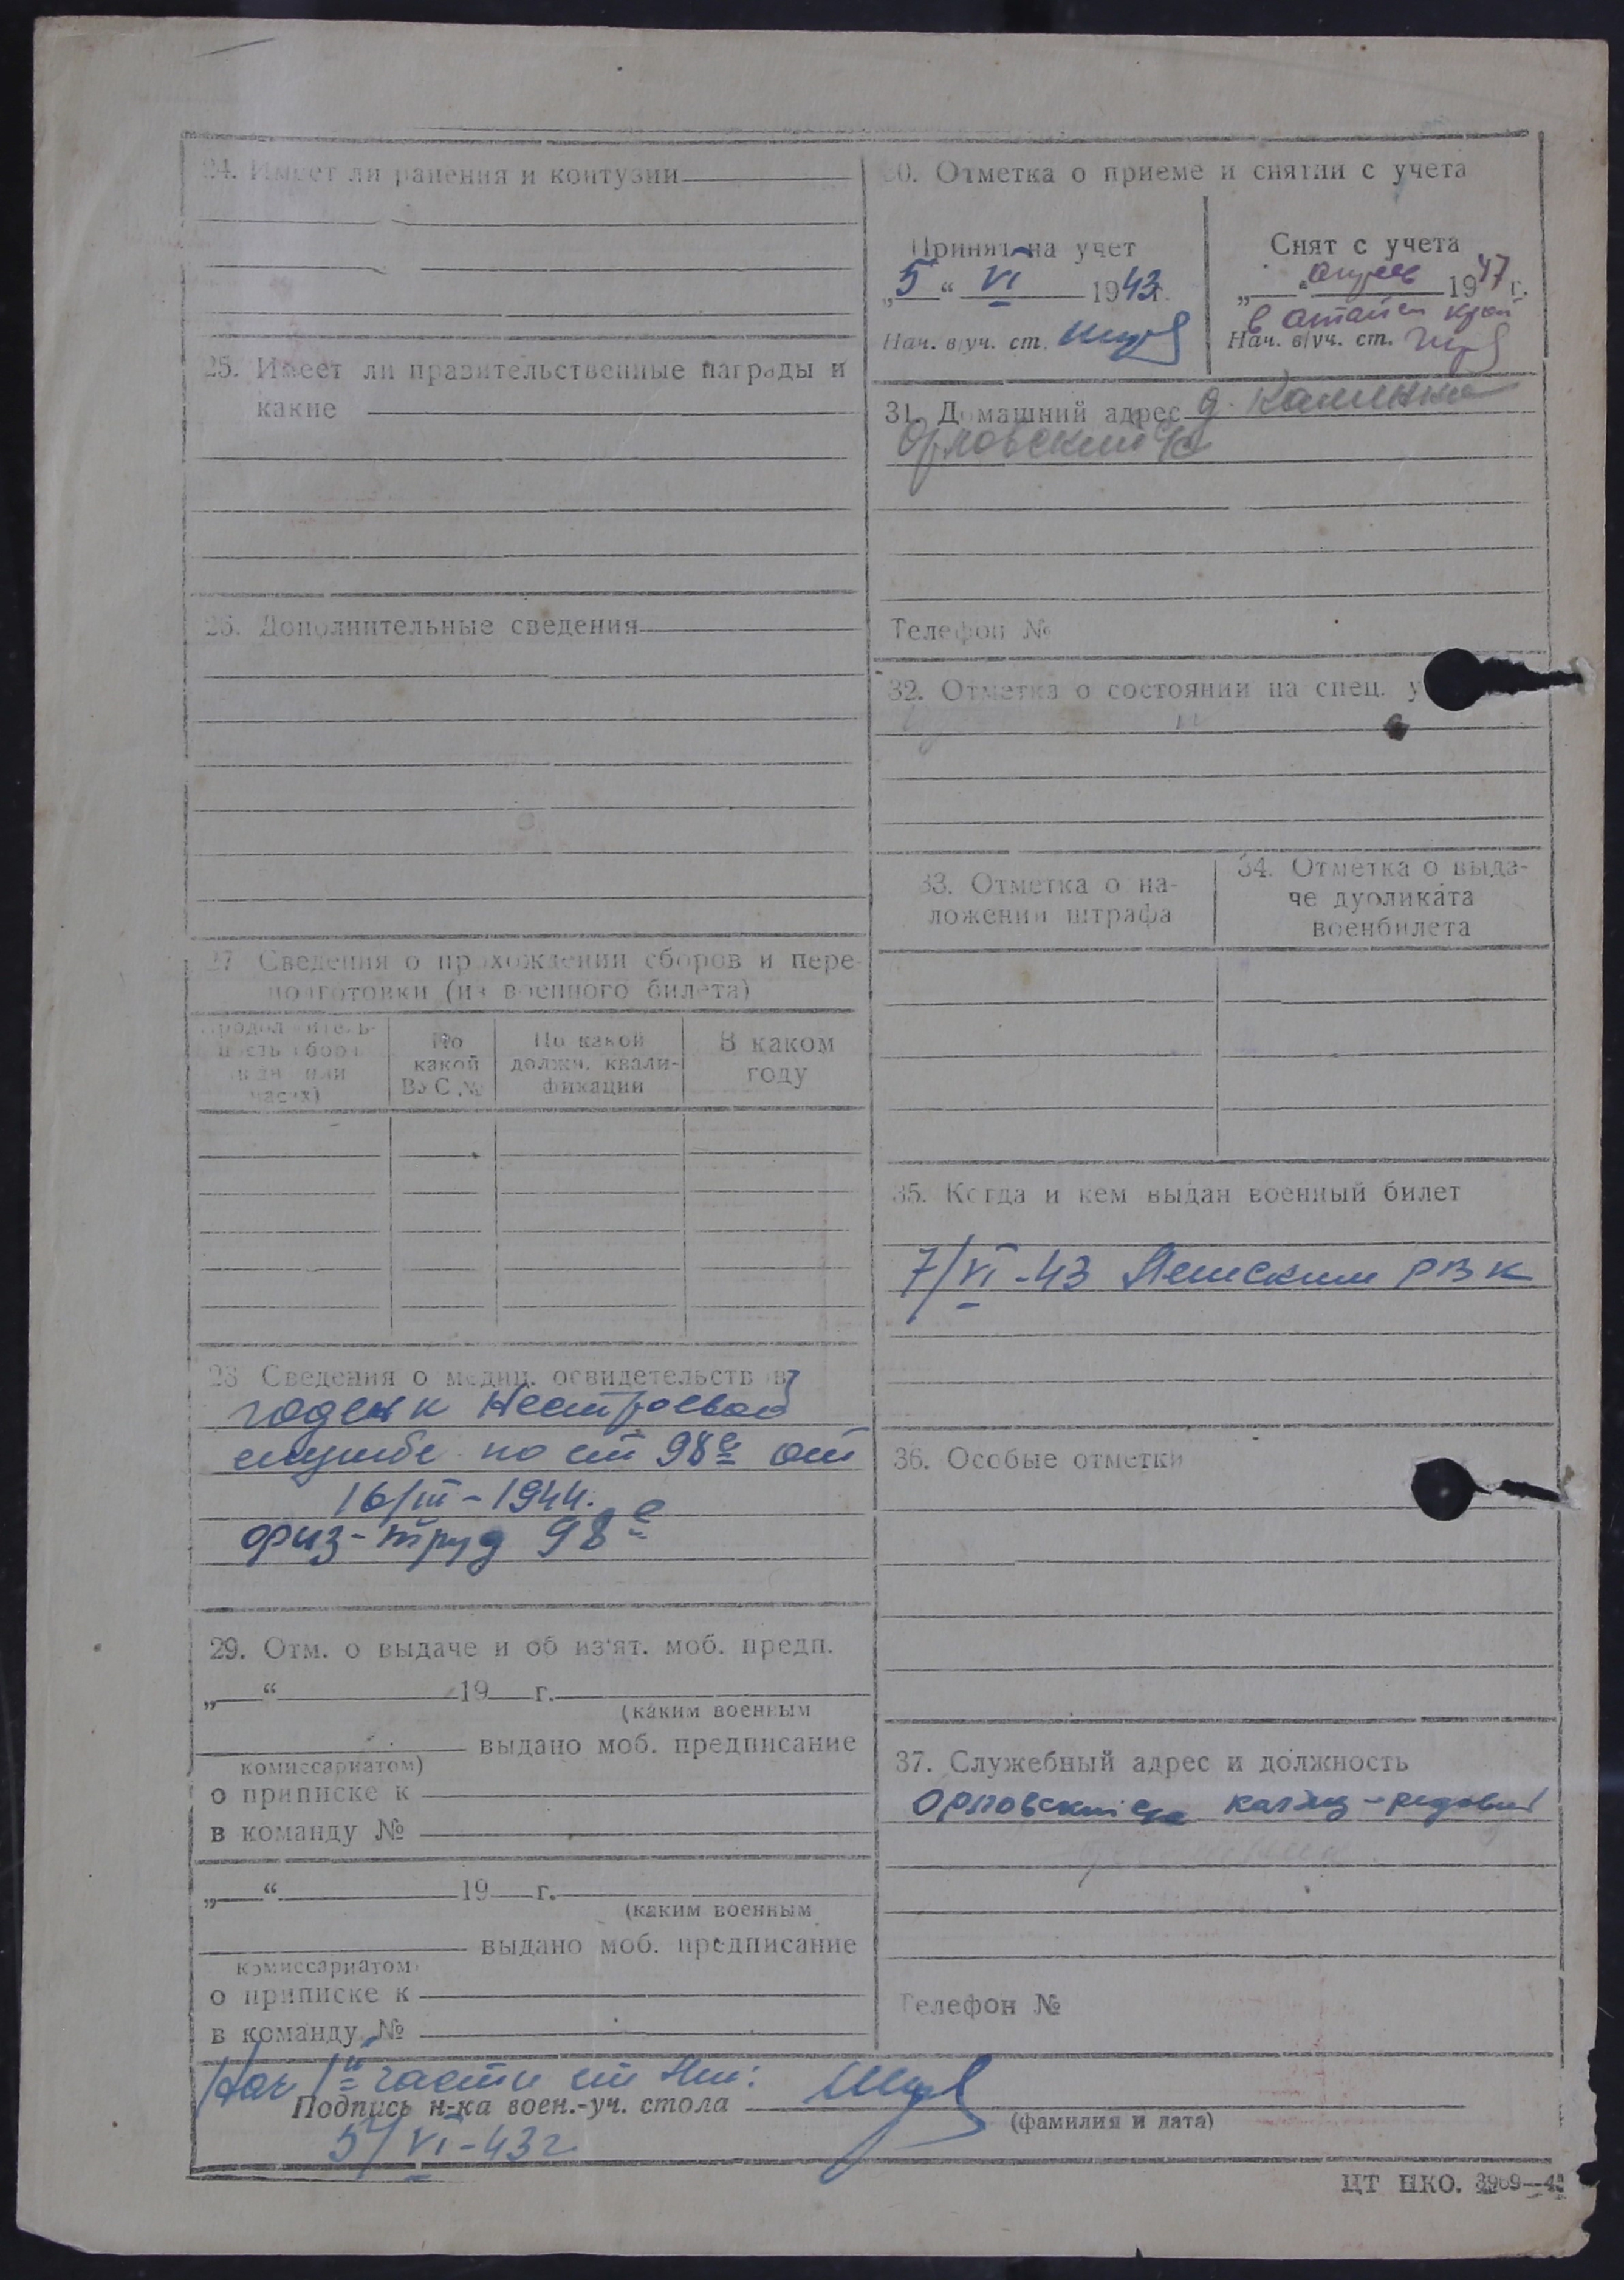 24. Имеет ли ранения и контузии
25. Имеет ли правительственные награды и
какие
26. Дополнительные сведения
27 Сведения о прохождении сборов и пере-
подготовки (из военного билета)
Продолжитель-
ность сбора
(в дн. или
часах)
По
какой
ВУС №
По какой
должн. квали-
фикации
В каком
году
28 Сведения о медиц. освидетельств в
годен к нестроевой
службе по ст 98е от
16/III-1944.
физ-труд 98е
29. Отм. о выдаче и об из'ят. моб. предп.
„ “ 19 г.
(каким военным
выдано моб. предписание
комиссариатом)
о приписке к
в команду №
„ “ 19 г.
(каким военным
выдано моб. предписание
комиссариатом)
о приписке к
в команду №
30. Отметка о приеме и снятии с учета
Принят на учет
„5“ VI 1943г.
Нач. в/уч. ст.
Снят с учета
„ “ апрель 1947 г.
в край
Нач. в/уч. ст.
31. Домашний адрес д. Калинка
Орловский с/с
Телефон №
32. Отметка о состоянии на спец. у
33. Отметка о на-
ложении штрафа
34. Отметка о выда-
че дубликата
военбилета
35. Когда и кем выдан военный билет
7/VI-43 РВК
36. Особые отметки
37. Служебный адрес и должность
Орловский с/с рядовой
Телефон №
Нач 1й части
Подпись н-ка воен.-уч. стола
(фамилия и дата)
5/VI-43г
ЦТ НКО. 3969—4